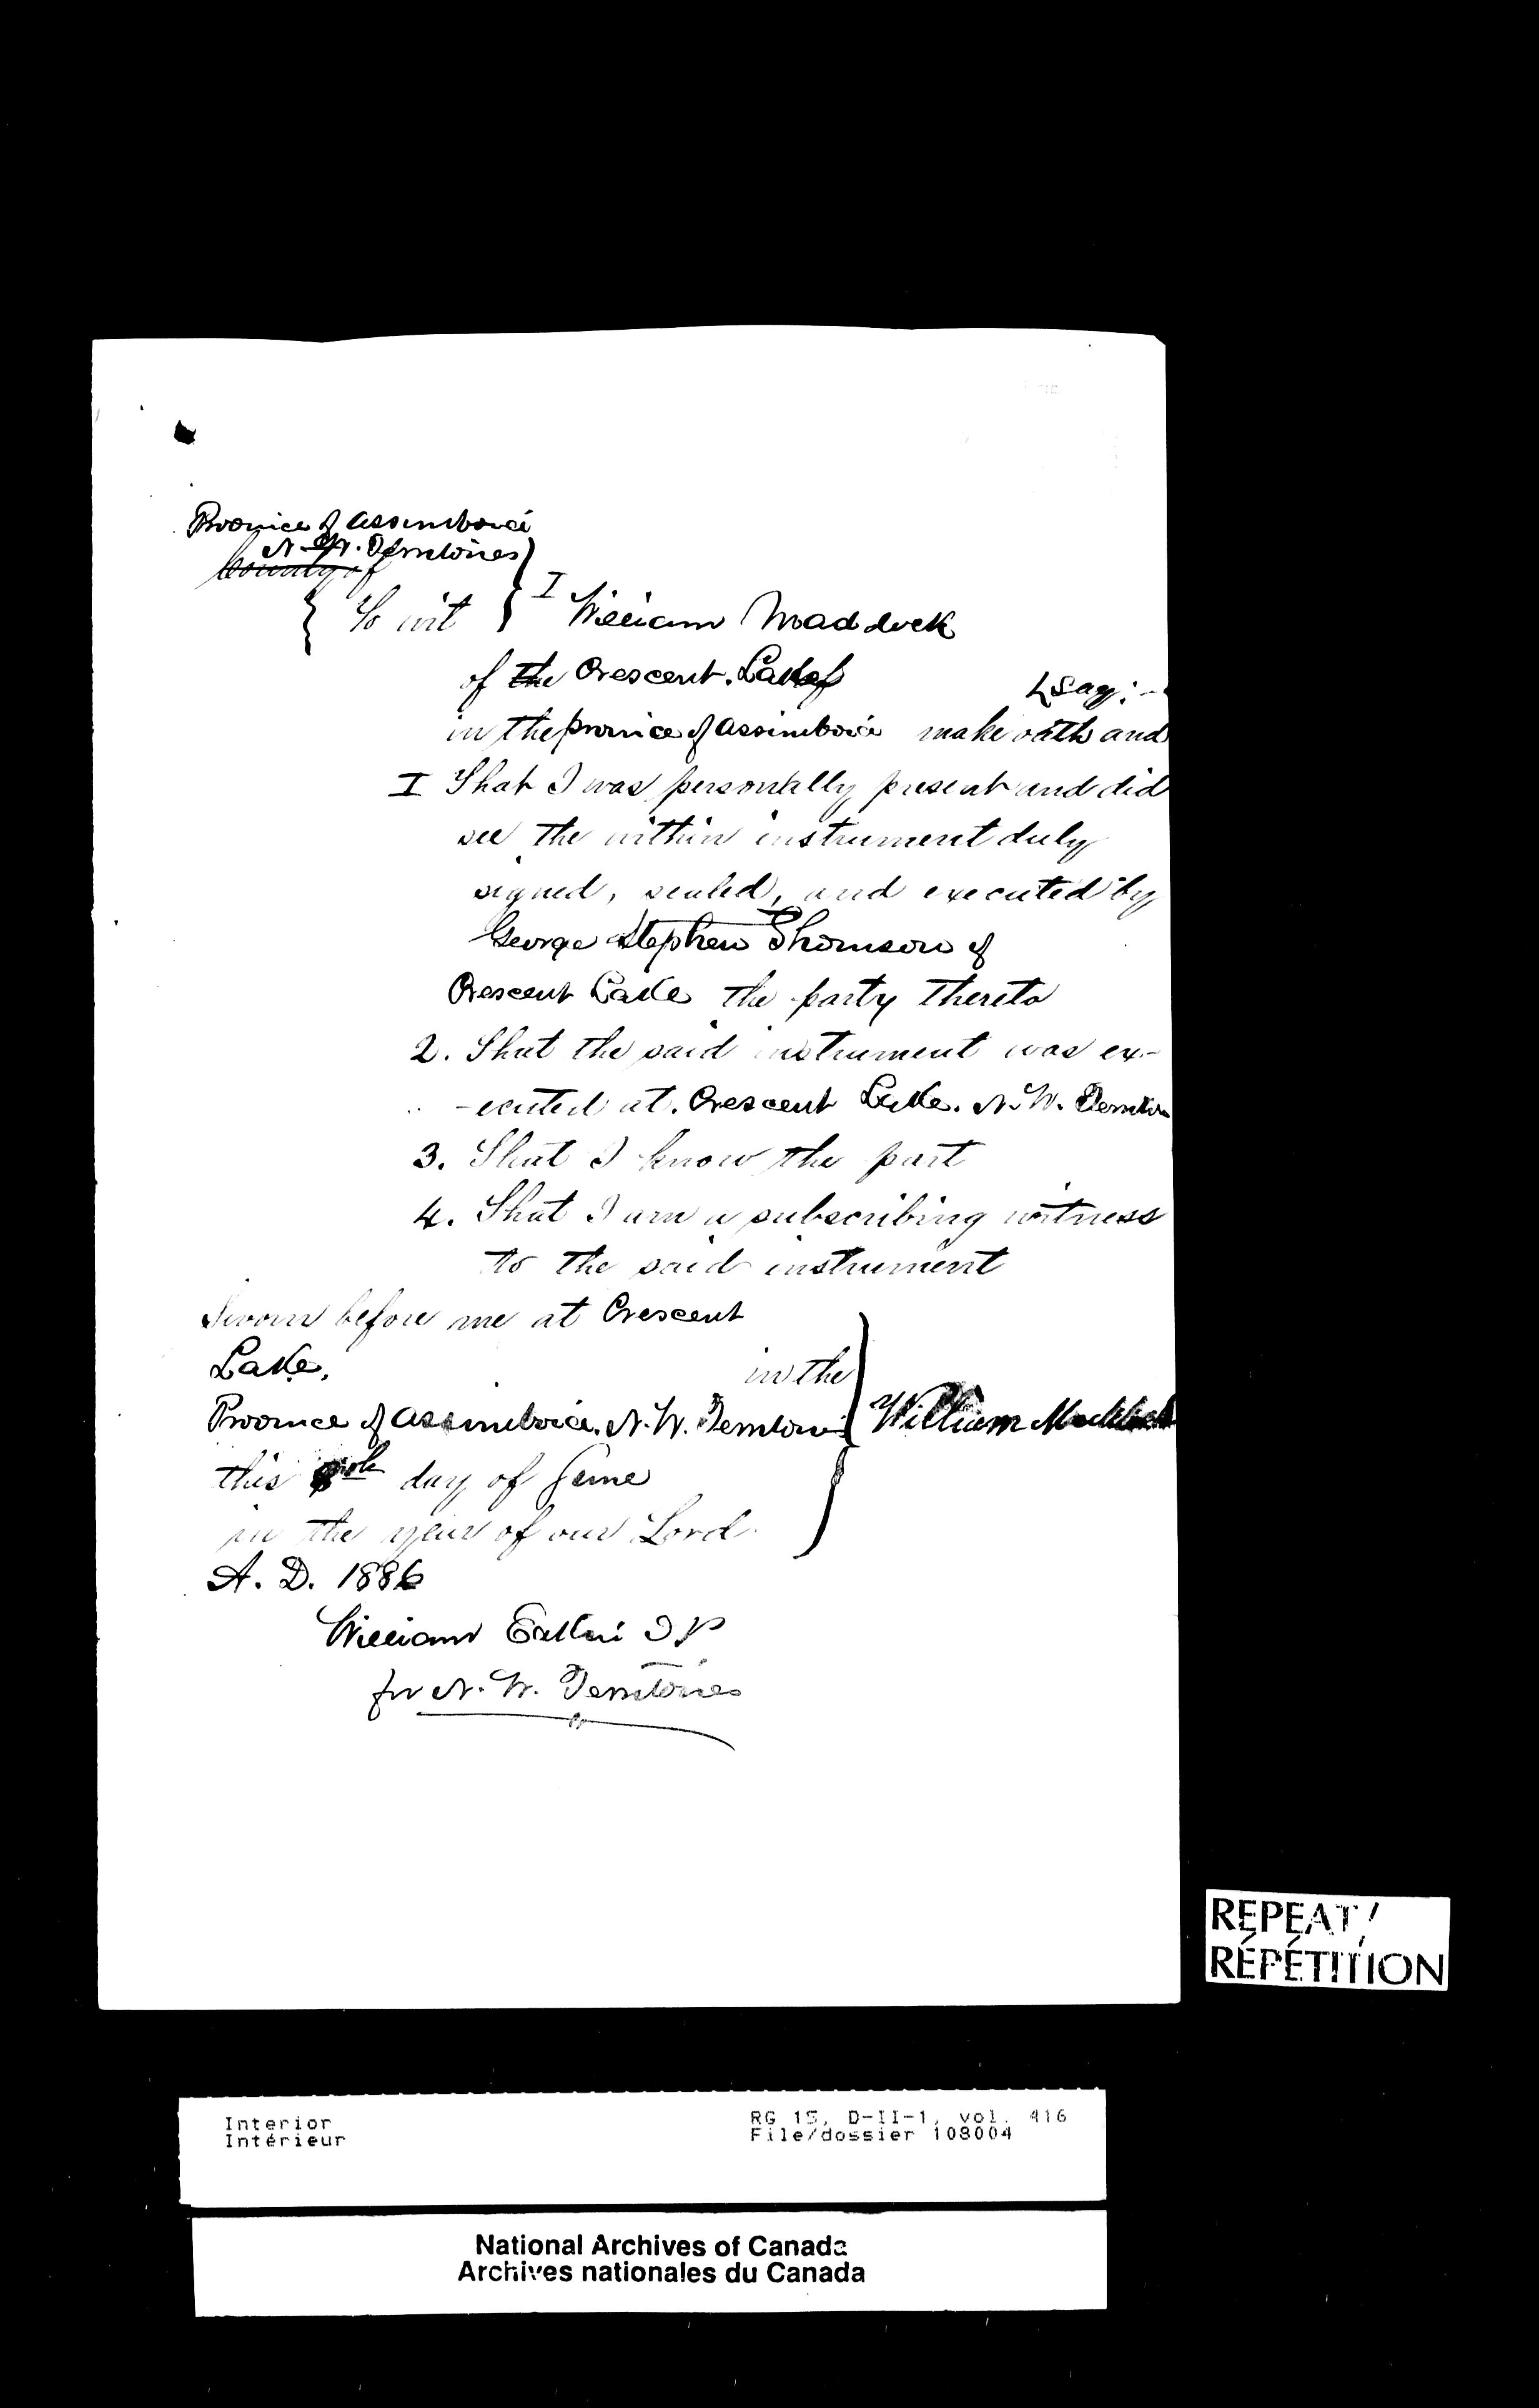 Province of Assiniboia
N. W. Territories
County of
To wit I William Maddock
of the Crescent. Lake
& Say:-
in the province of Assiniboia make oath and
I That I was personally present and did
see the within instrument duly
signed, sealed, and executed by
George Stephen Thomson of
Crescent Lake the party thereto
2. That the said instrument was ex-
-ecuted at. Crescent Lake. N. W.
3. That I know the part
4. That I am a subscribing witness
to the said instrument
Sworn before me at Crescent
Lake, in the
Province of Assiniboia. N. W. Territories William Maddock
this day of June
in the year of our Lord
A. D. 1886
William J P
for N. W. Territories
REPEAT /
RÉPÉTITION
Interior RG 15, D-II-1, vol. 416
Intérieur File/dossier 108004
National Archives of Canada
Archives nationales du Canada